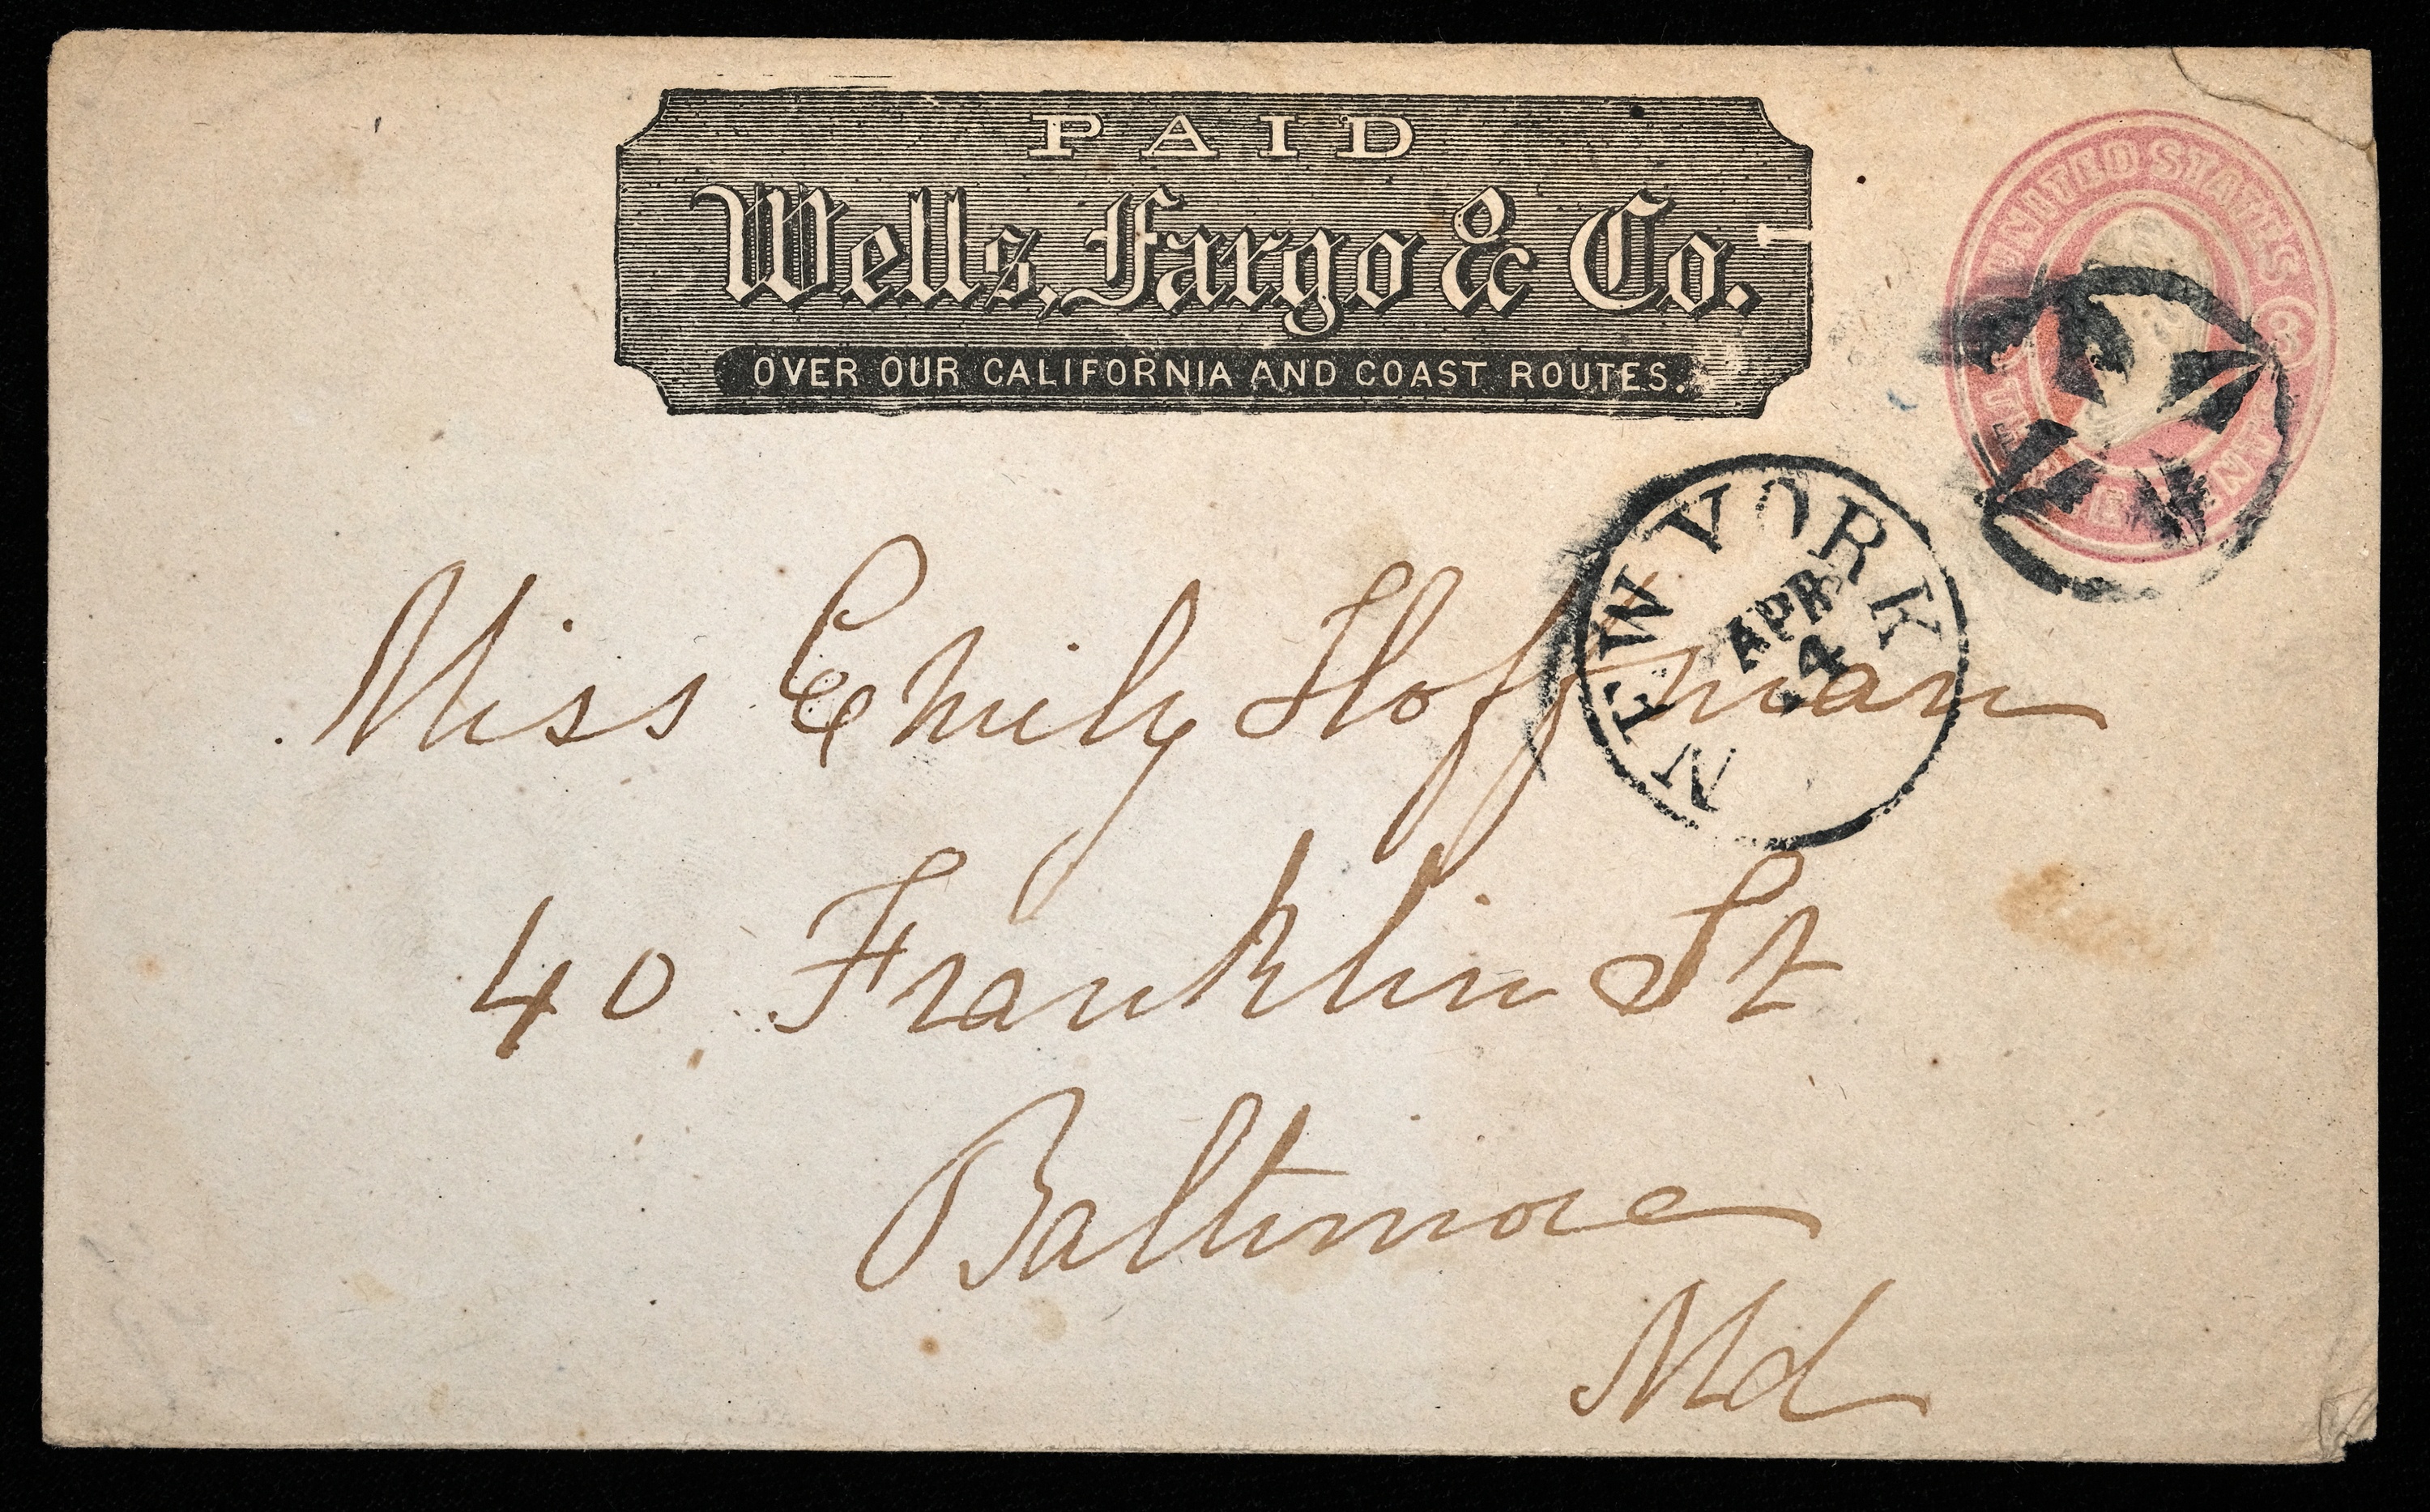 PAID
Wells, Fargo & Co.
OVER OUR CALIFORNIA AND COAST ROUTES.
UNITED STATES
THREE CENTS
3
NEW YORK
APR
4
Miss Emily Hoffman
40 Franklin St
Baltimore
Md